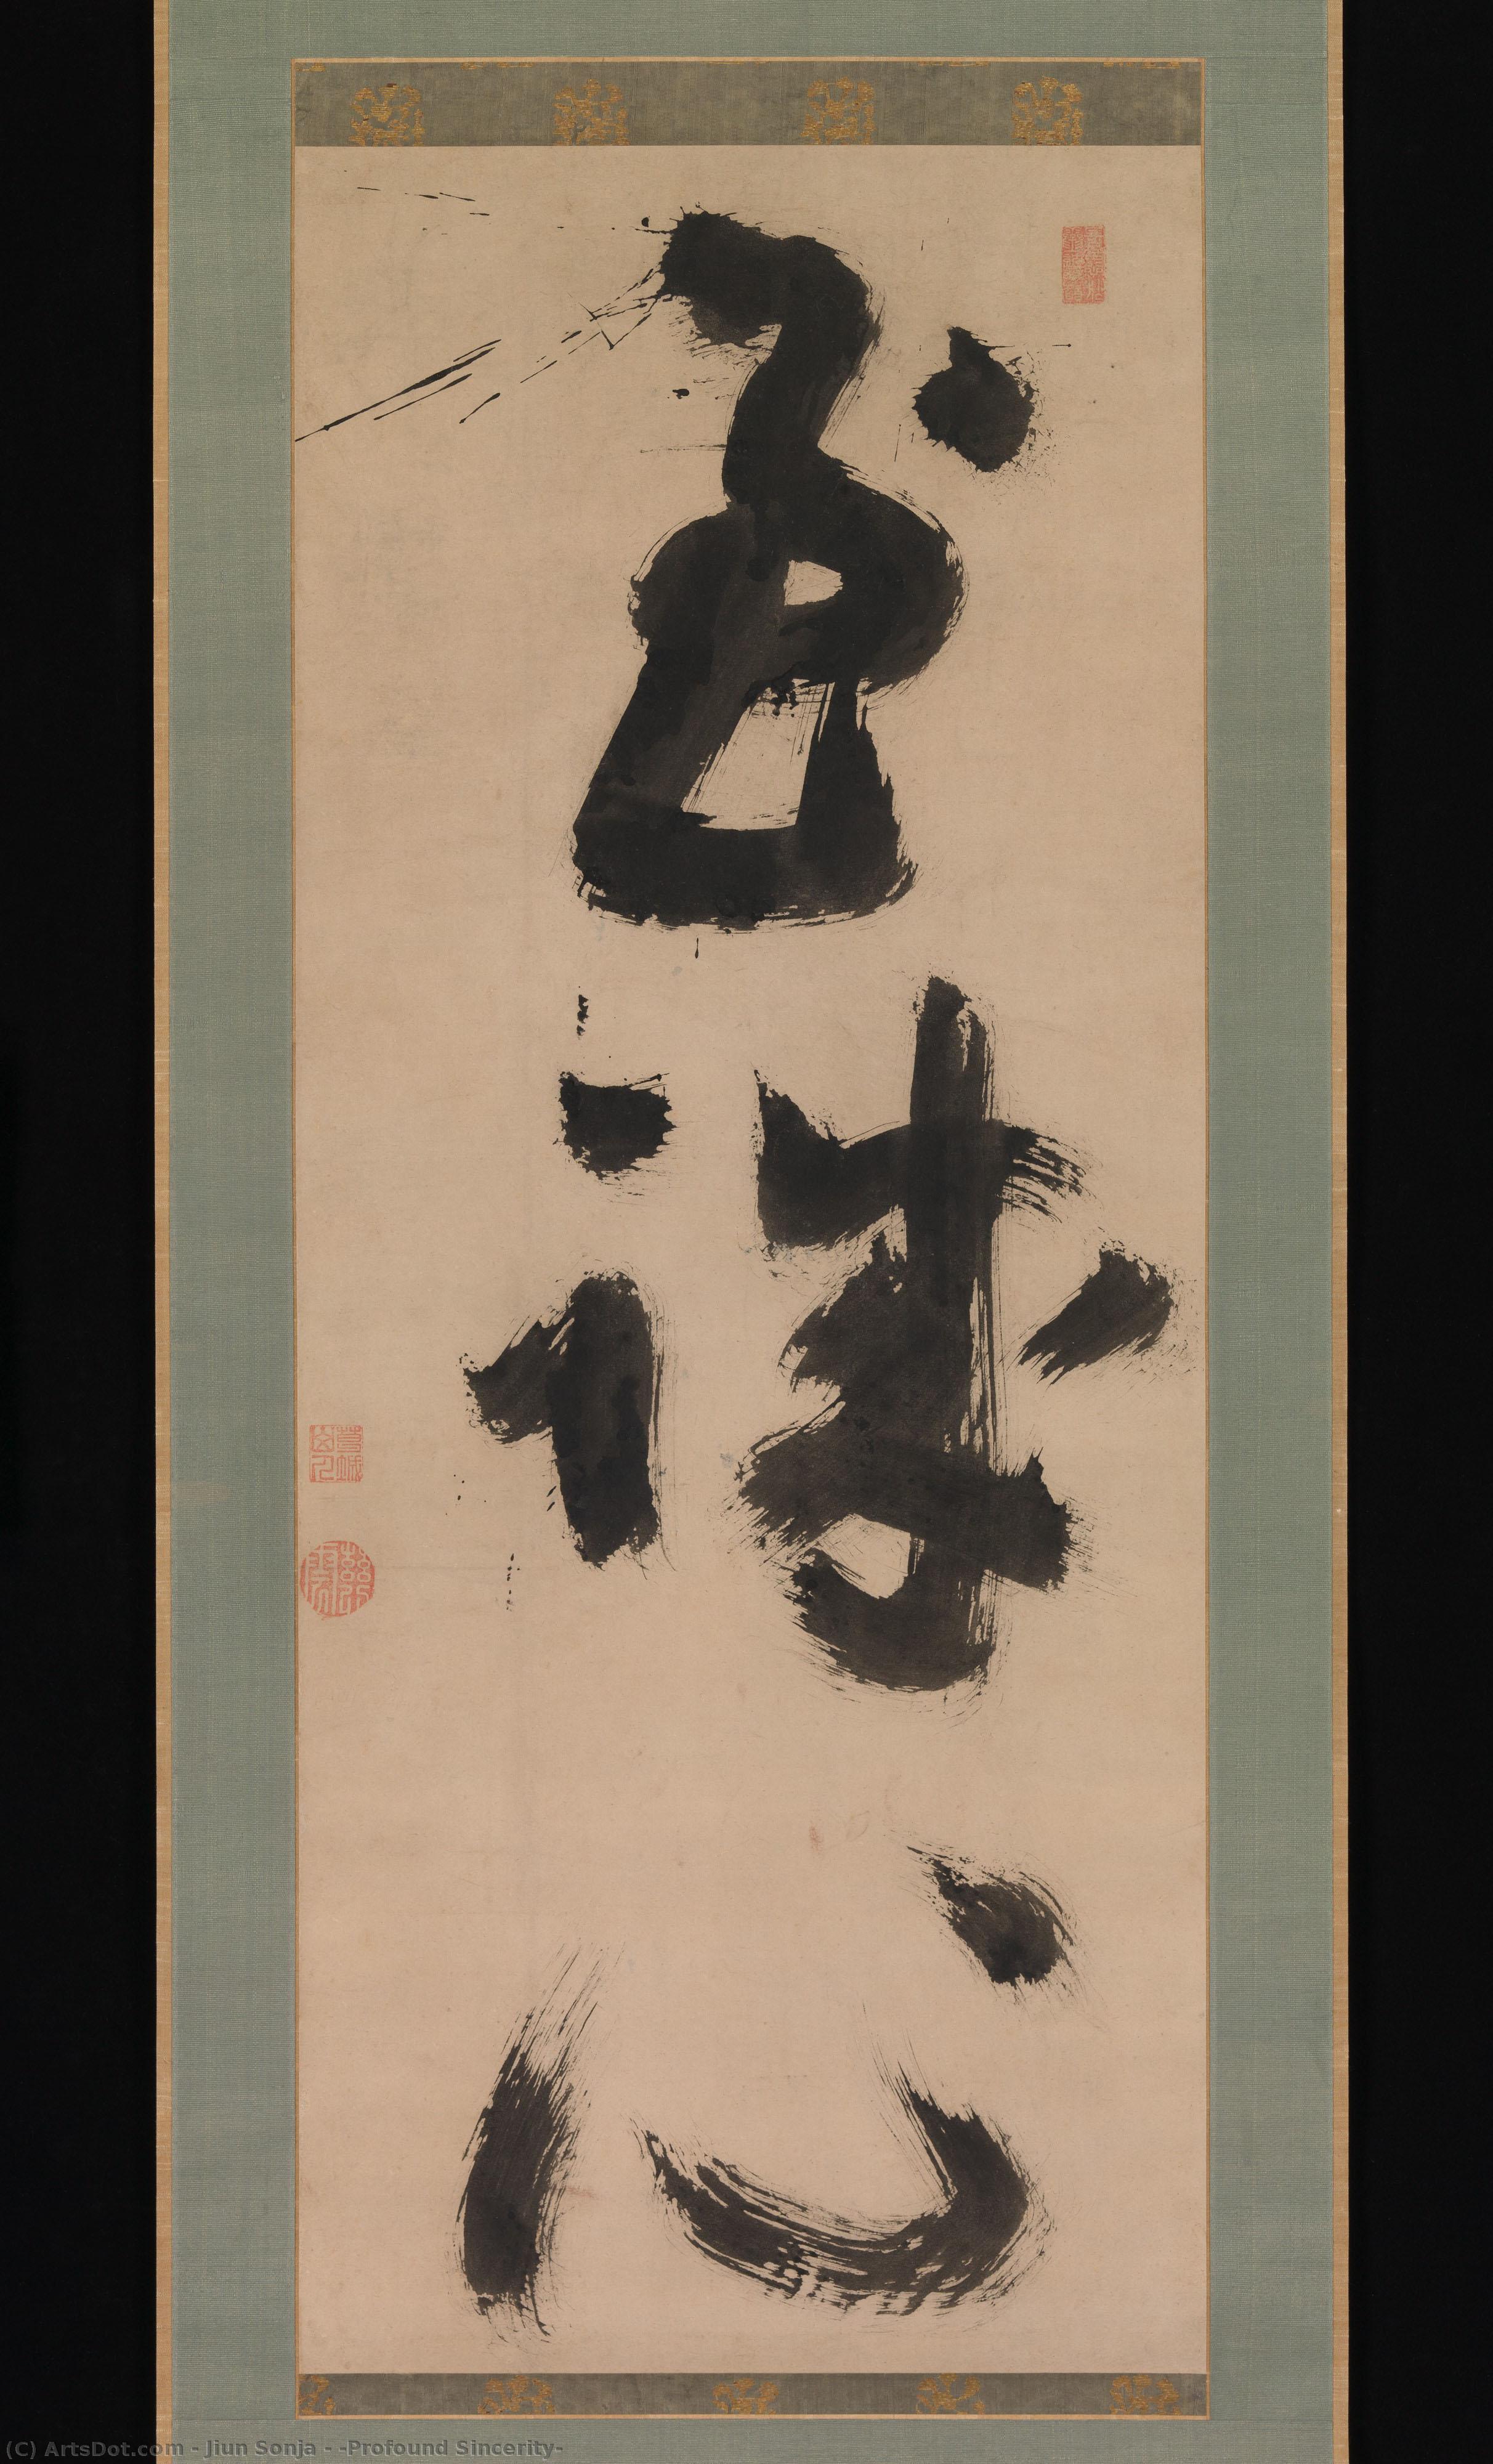 至誠心
葛城山人
慈雲
(C) ArtsDot.com - Jiun Sonja - -Profound Sincerity-